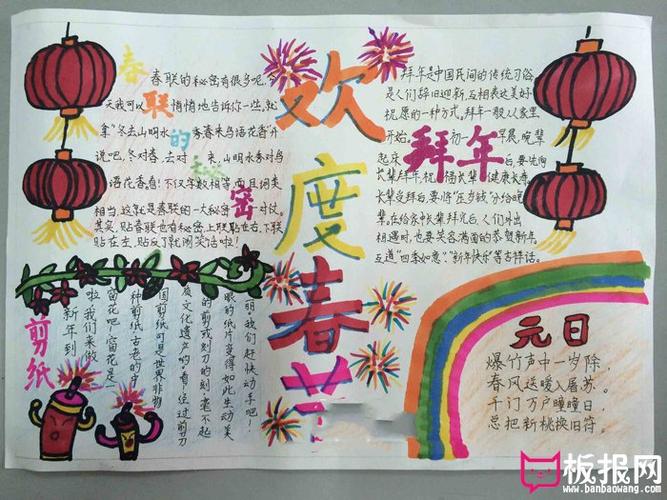 欢度春节
春联的秘密
春联的秘密有很多呢,今
天我可以悄悄地告诉你一些。就
拿"冬去山明水秀春来鸟语花香"来
说吧,冬对春,去对来,山明水秀对鸟
语花香,看!不仅字数相等,而且词类
相当,这就是春联的一大秘密——对仗。
其实,贴春联也有秘密,上联贴在右,下联
贴在左,贴反了就闹笑话啦!
拜年
拜年是中国民间的传统习俗,
是人们辞旧迎新、互相表达美好
祝愿的一种方式。拜年一般从家里
开始。初一早晨,晚辈
起床后,要先向
长辈拜年,祝福长辈健康长寿,
长辈受拜后,要将"压岁钱"分给晚
辈。在给家中长辈拜完后,人们外出
相遇时,也要笑容满面的恭贺新年,
互道"四季如意""新年快乐"等吉祥话。
剪纸
新年到
啦,我们来做
窗花吧!窗花是一
种剪纸,古老的中
国剪纸可是世界非物
质文化遗产的。看!经过剪刀
的剪或刻刀的刻,毫不起
眼的纸片变得如此生动美
我们赶快动手吧!
元日
爆竹声中一岁除,
春风送暖入屠苏。
千门万户曈曈日,
总把新桃换旧符。
板报网
www.banbaowang.com